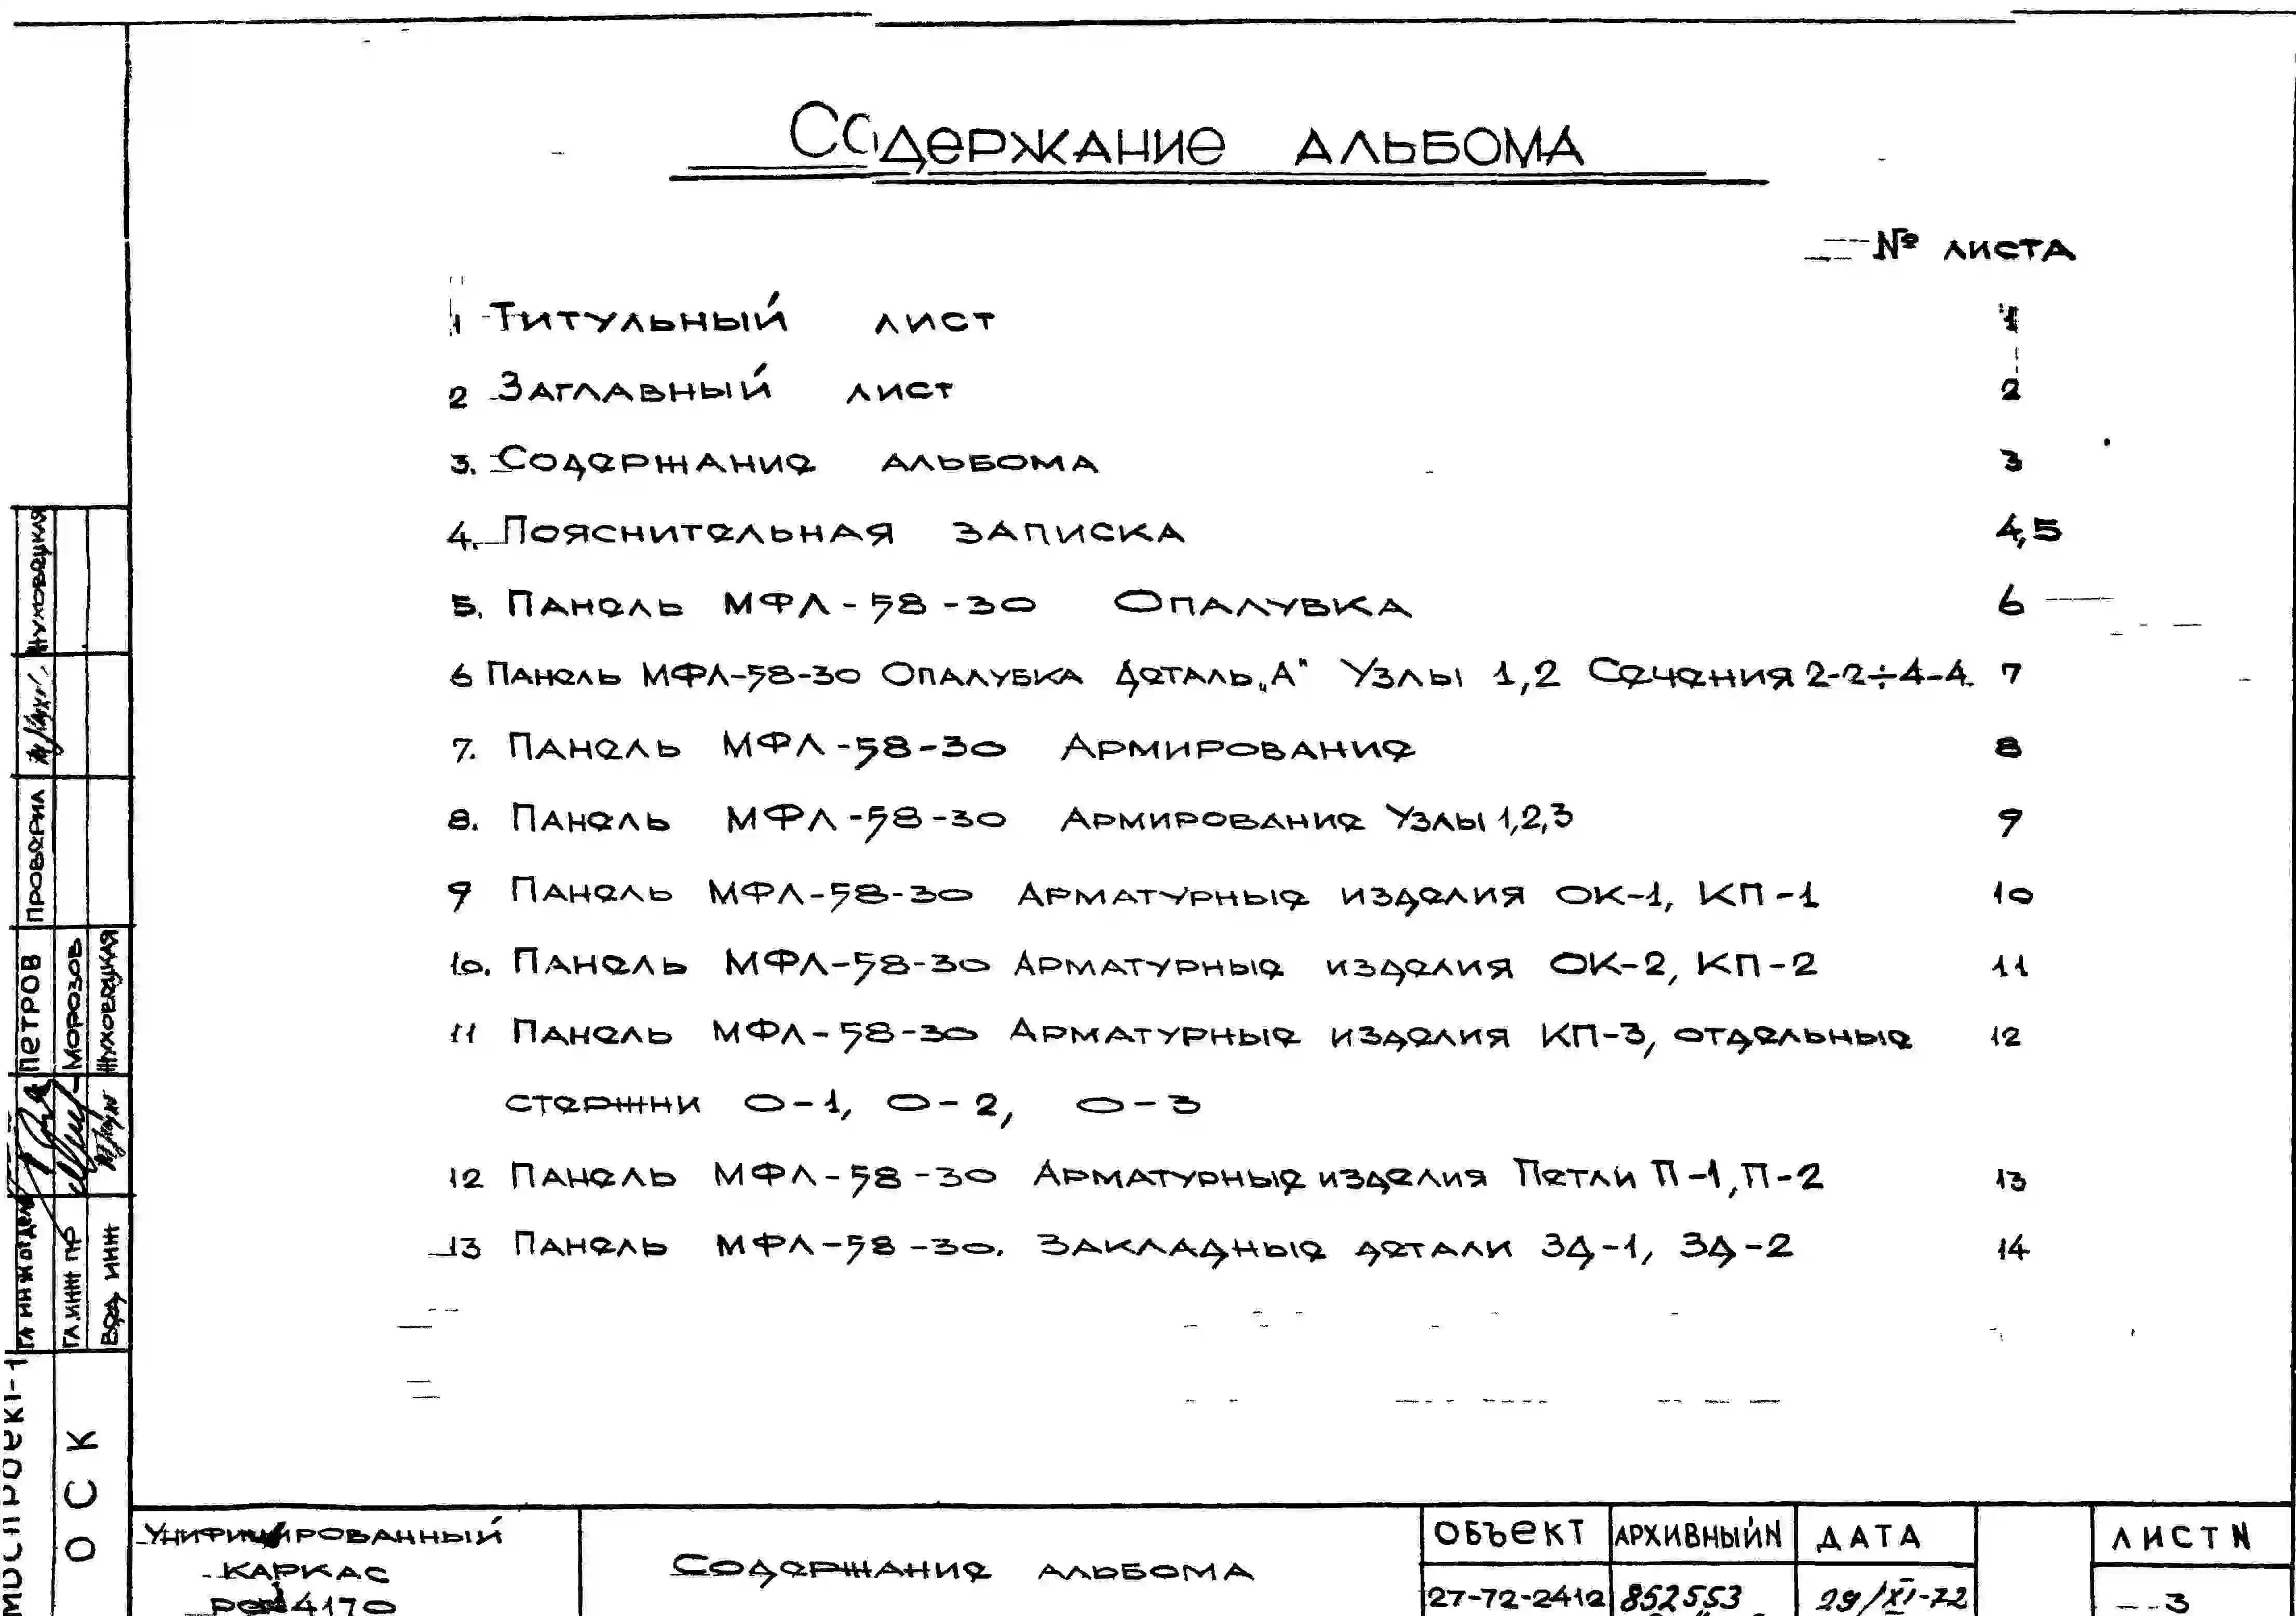 Содержание альбома
№ листа
1 Титульный лист 1
2 Заглавный лист 2
3. Содержание альбома 3
4. Пояснительная записка 4,5
5. Панель МФЛ-58-30 Опалувка 6
6 Панель МФЛ-58-30 Опалубка Деталь „А" Узлы 1,2 Сечения 2-2÷4-4. 7
7. Панель МФЛ-58-30 Армирование 8
8. Панель МФЛ-58-30 Армирование Узлы 1,2,3 9
9 Панель МФЛ-58-30 Арматурные изделия ОК-1, КП-1 10
10. Панель МФЛ-58-30 Арматурные изделия ОК-2, КП-2 11
11 Панель МФЛ-58-30 Арматурные изделия КП-3, отдельные 12
стержни О-1, О-2, О-3
12 Панель МФЛ-58-30 Арматурные изделия Петли П-1, П-2 13
13 Панель МФЛ-58-30. Закладные детали ЗД-1, ЗД-2 14
Жуховецкая
Проверил
Петров
Морозов
Жуховецкая
Гл инж отдела
Гл.инж пр
Вед инж
Моспроект-1
ОСК
Унифицированный
каркас
4170
Содержание альбома
Объект
Архивный N
Дата
Лист N
27-72-2412
852553
29/XI-72
3